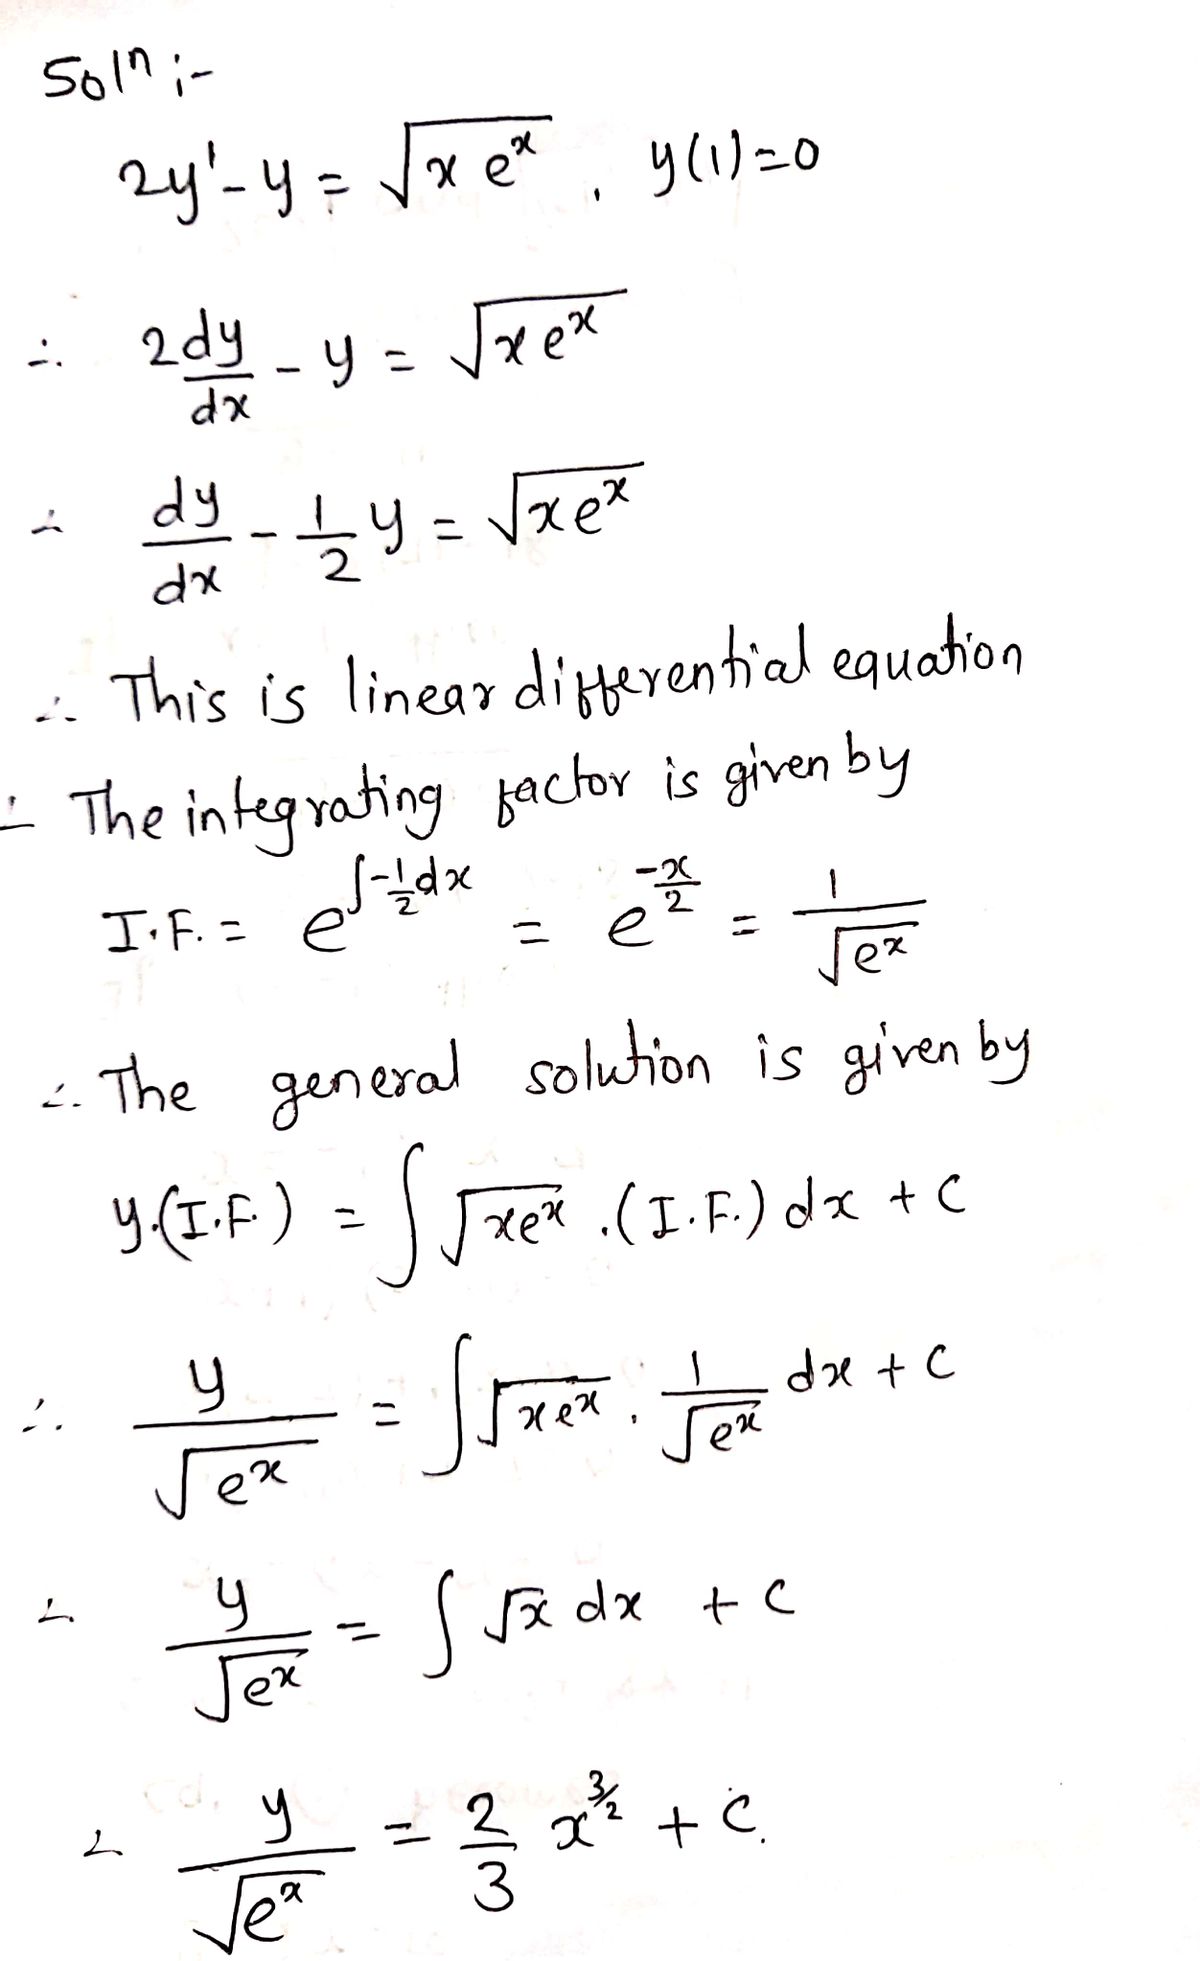 Soln :-
2y' - y = √(x e^x) , y(1)=0
∴ 2dy/dx - y = √(x e^x)
∴ dy/dx - 1/2 y = √(x e^x)
∴ This is linear differential equation
∴ The integrating factor is given by
I.F. = e^(∫-1/2 dx) = e^(-x/2) = 1/√(e^x)
∴ The general solution is given by
y.(I.F.) = ∫ √(x e^x) .(I.F.) dx + C
∴ y/√(e^x) = ∫ √(x e^x) . 1/√(e^x) dx + C
∴ y/√(e^x) = ∫ √x dx + C
∴ y/√(e^x) = 2/3 x^(3/2) + C.